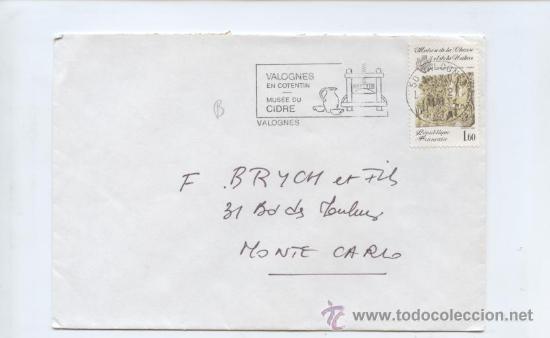 VALOGNES
EN COTENTIN
MUSÉE DU
CIDRE
VALOGNES
Maison de la Chasse
et de la Nature
50 VALOGNES
République
Française
1.60
B
F. BRYCH et Fils
31 Bd des Moulins
MONTE CARLO
www.todocoleccion.net